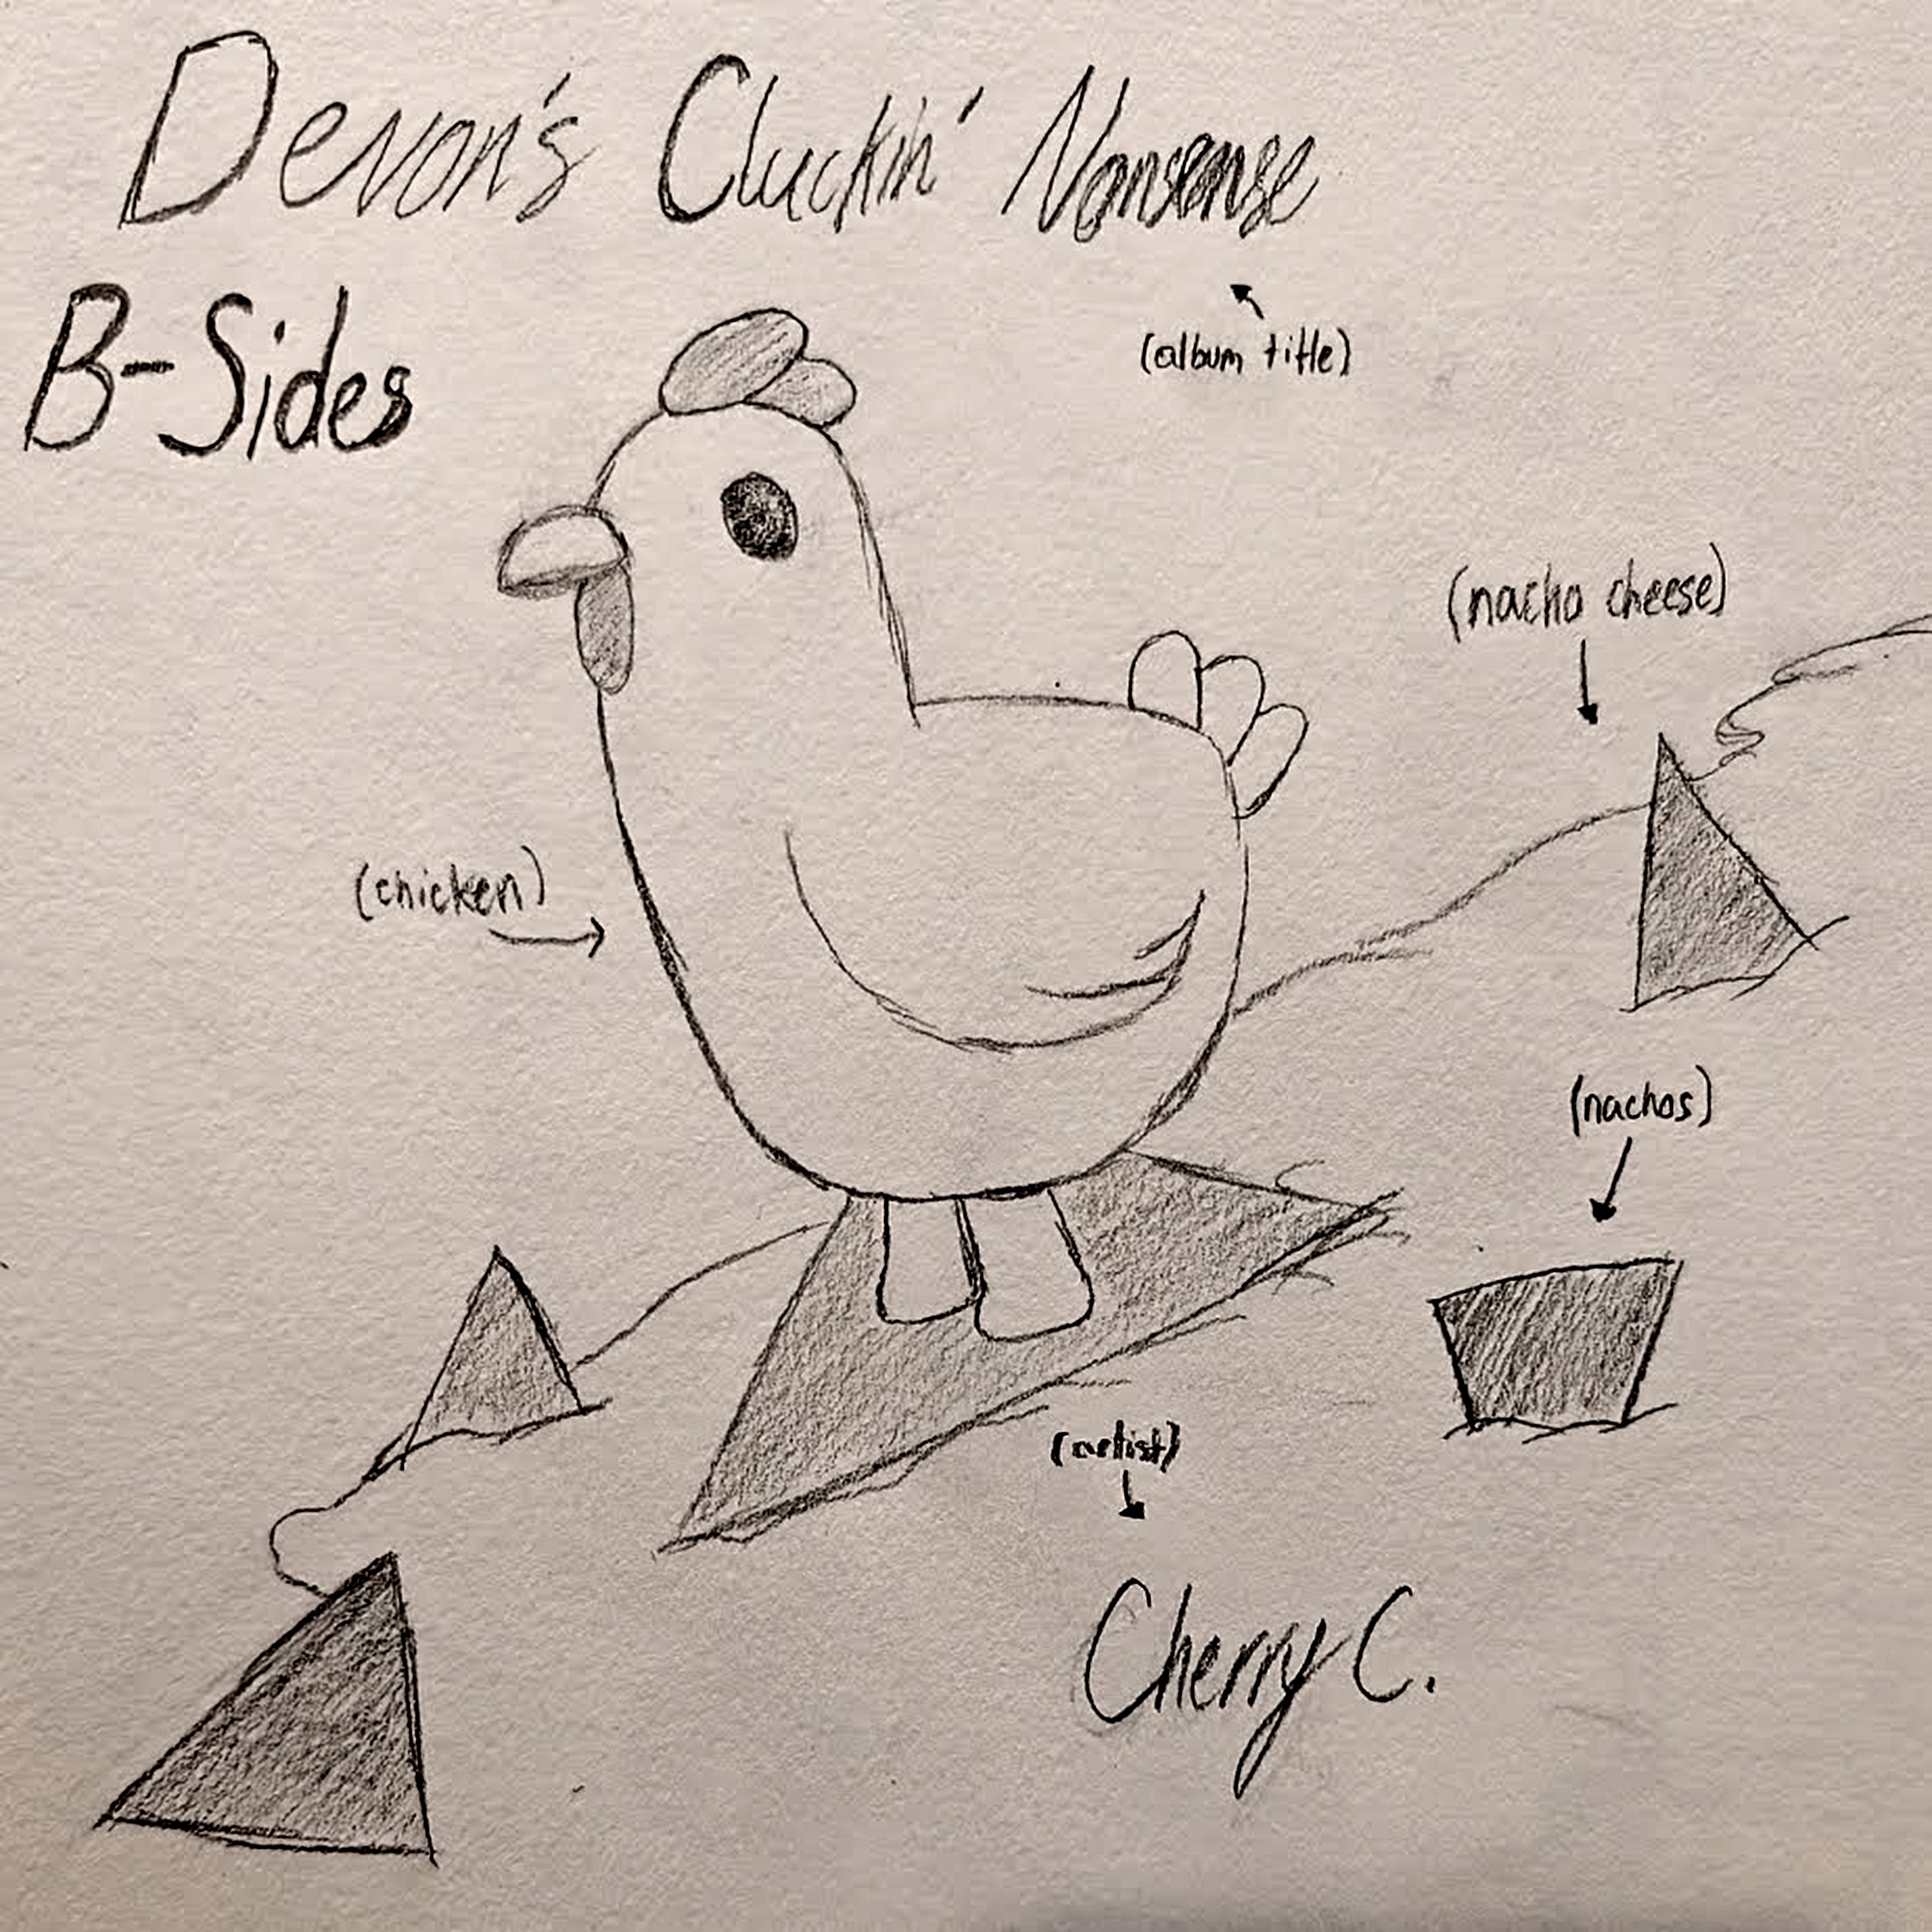 Devon's Cluckin' Nonsense
B-Sides
(album title)
(nacho cheese)
(chicken)
(nachos)
(artist)
Cherry C.